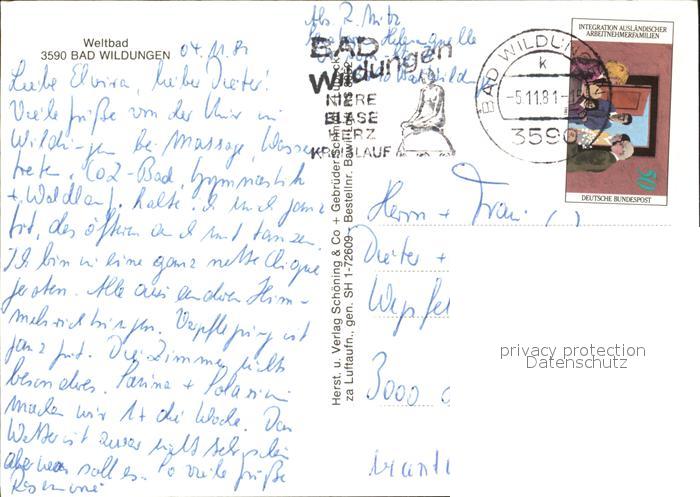 Weltbad
3590 BAD WILDUNGEN
04.11.81
Liebe Elvira, lieber Dieter!
Viele Grüße von der Kur in
Wildungen bei Massage, Wasser
treten, CO2-Bad, Gymnastik
+ Waldlauf halte ich mich ganz
fit, des öfteren auch mit tanzen.
Ich bin in eine ganz nette Clique
geraten. Alle aus anderen Him-
melsrichtungen. Verpflegung ist
ganz gut. Die Zimmer nichts
besonderes. Sauna + Solarium
machen wir 1x die Woche. Das
Wetter ist zwar nicht sehr schön
aber was soll es. So viele Grüße
Rosemarie
Herst. u. Verlag Schöning & Co + Gebrüder Schmidt
za Luftaufn., gen. SH 1-72609 Bestellnr. BaWi
Abs. R.
BAD
Wildungen
NIERE
BLASE
HERZ
KREISLAUF
BAD WILDUNGEN
k
-5.11.81-
3590
INTEGRATION AUSLÄNDISCHER
ARBEITNEHMERFAMILIEN
50
DEUTSCHE BUNDESPOST
Herrn + Frau
Dieter +
3000
privacy protection
Datenschutz